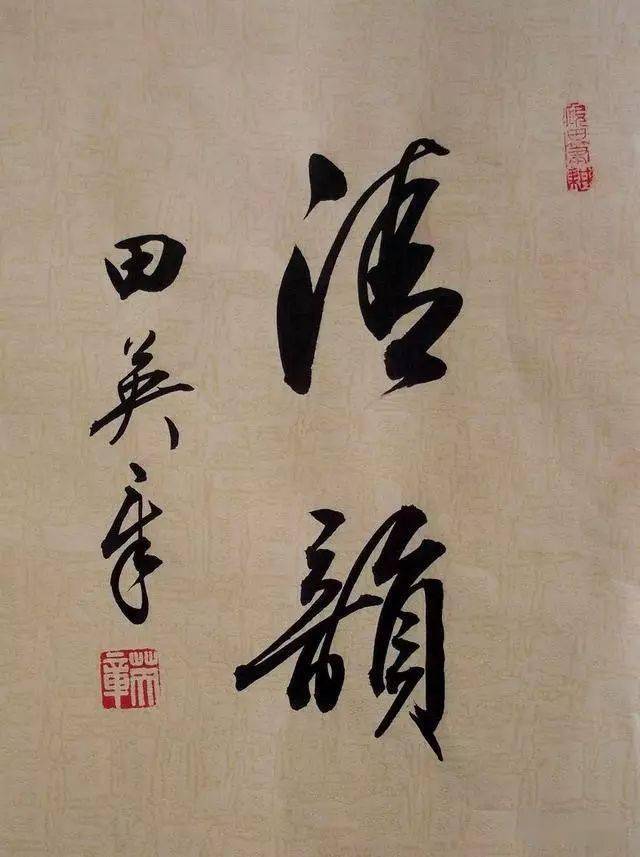 清韻
田英章